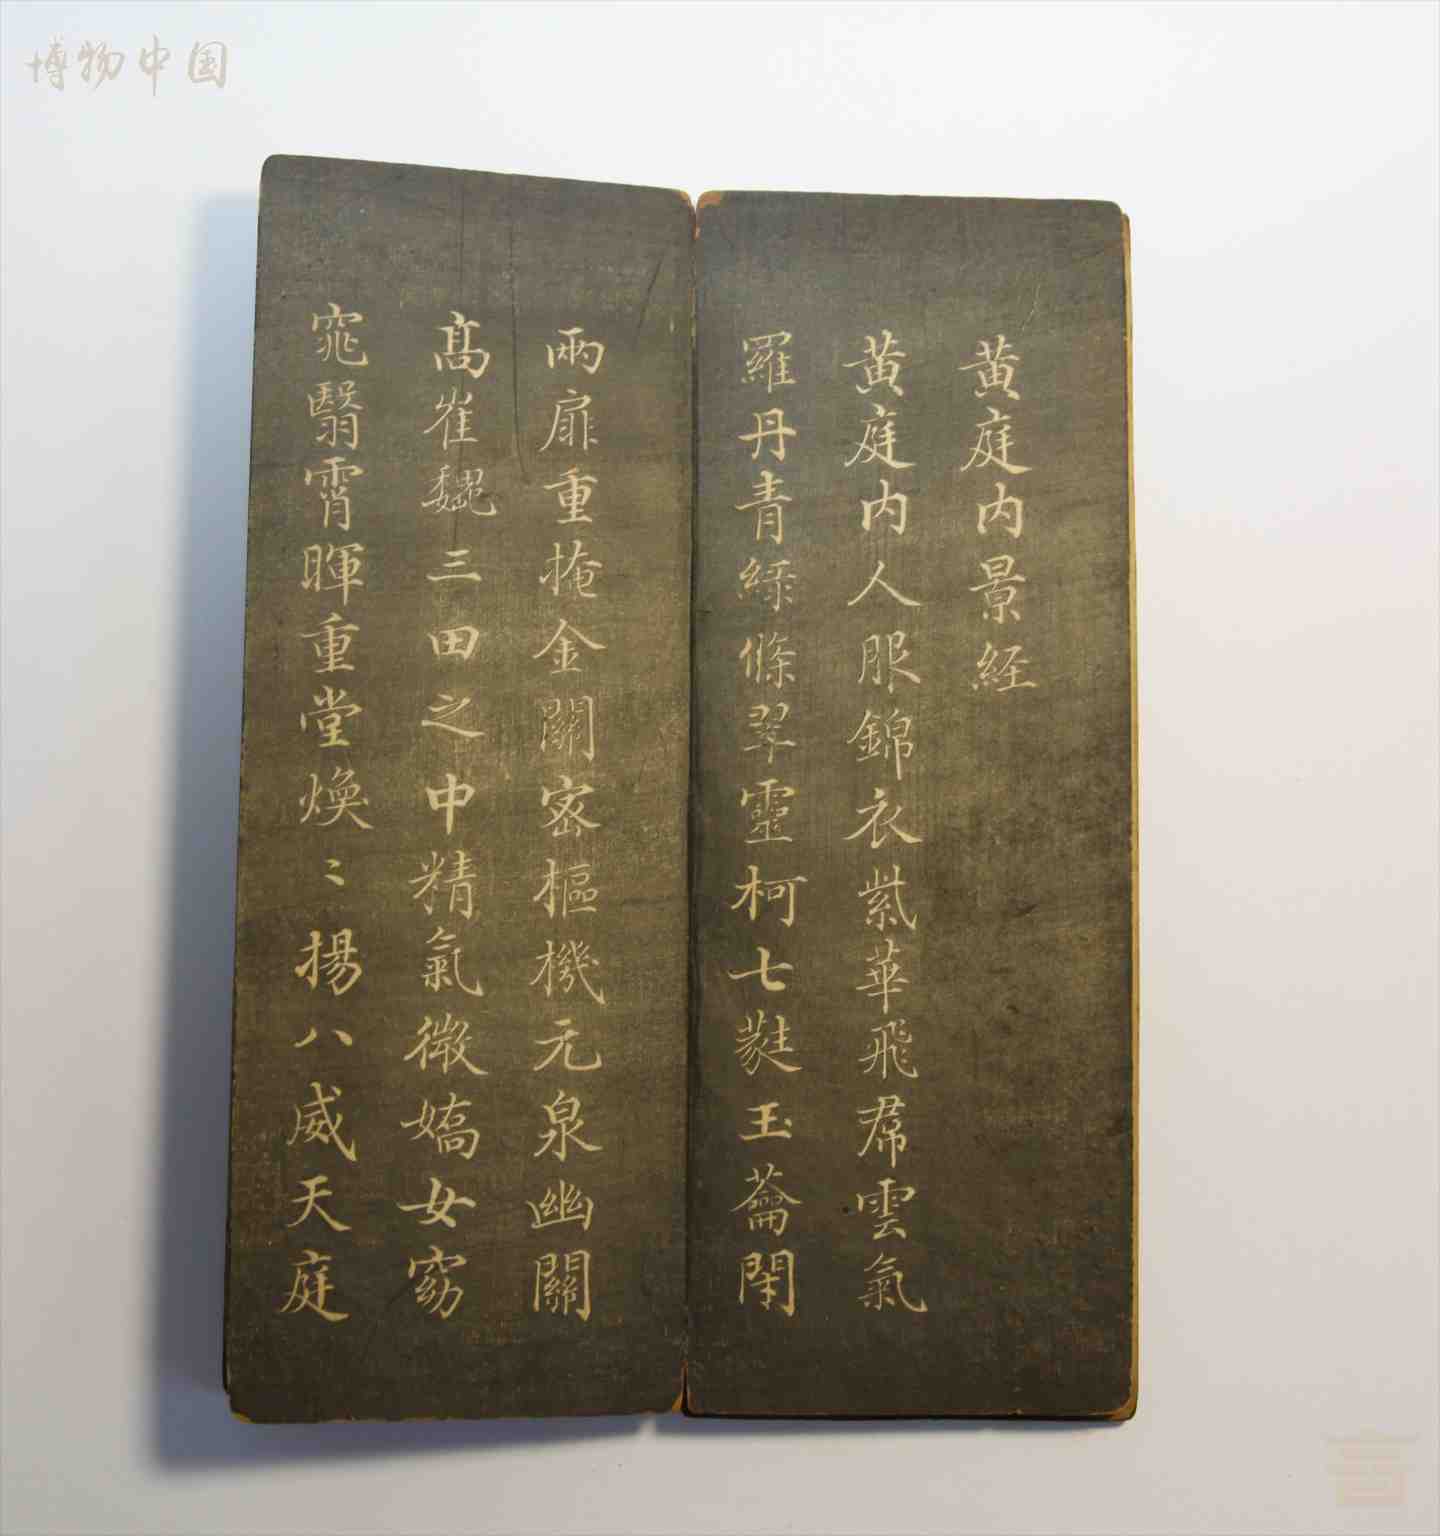 博物中国
黄庭内景経
黄庭内人服錦衣紫華飛帬雲氣
羅丹青緑條翠靈柯七蕤玉蘥閇
兩扉重掩金關密樞機元泉幽關
髙崔巍三田之中精氣微嬌女窈
窕翳霄暉重堂煥〻揚八威天庭